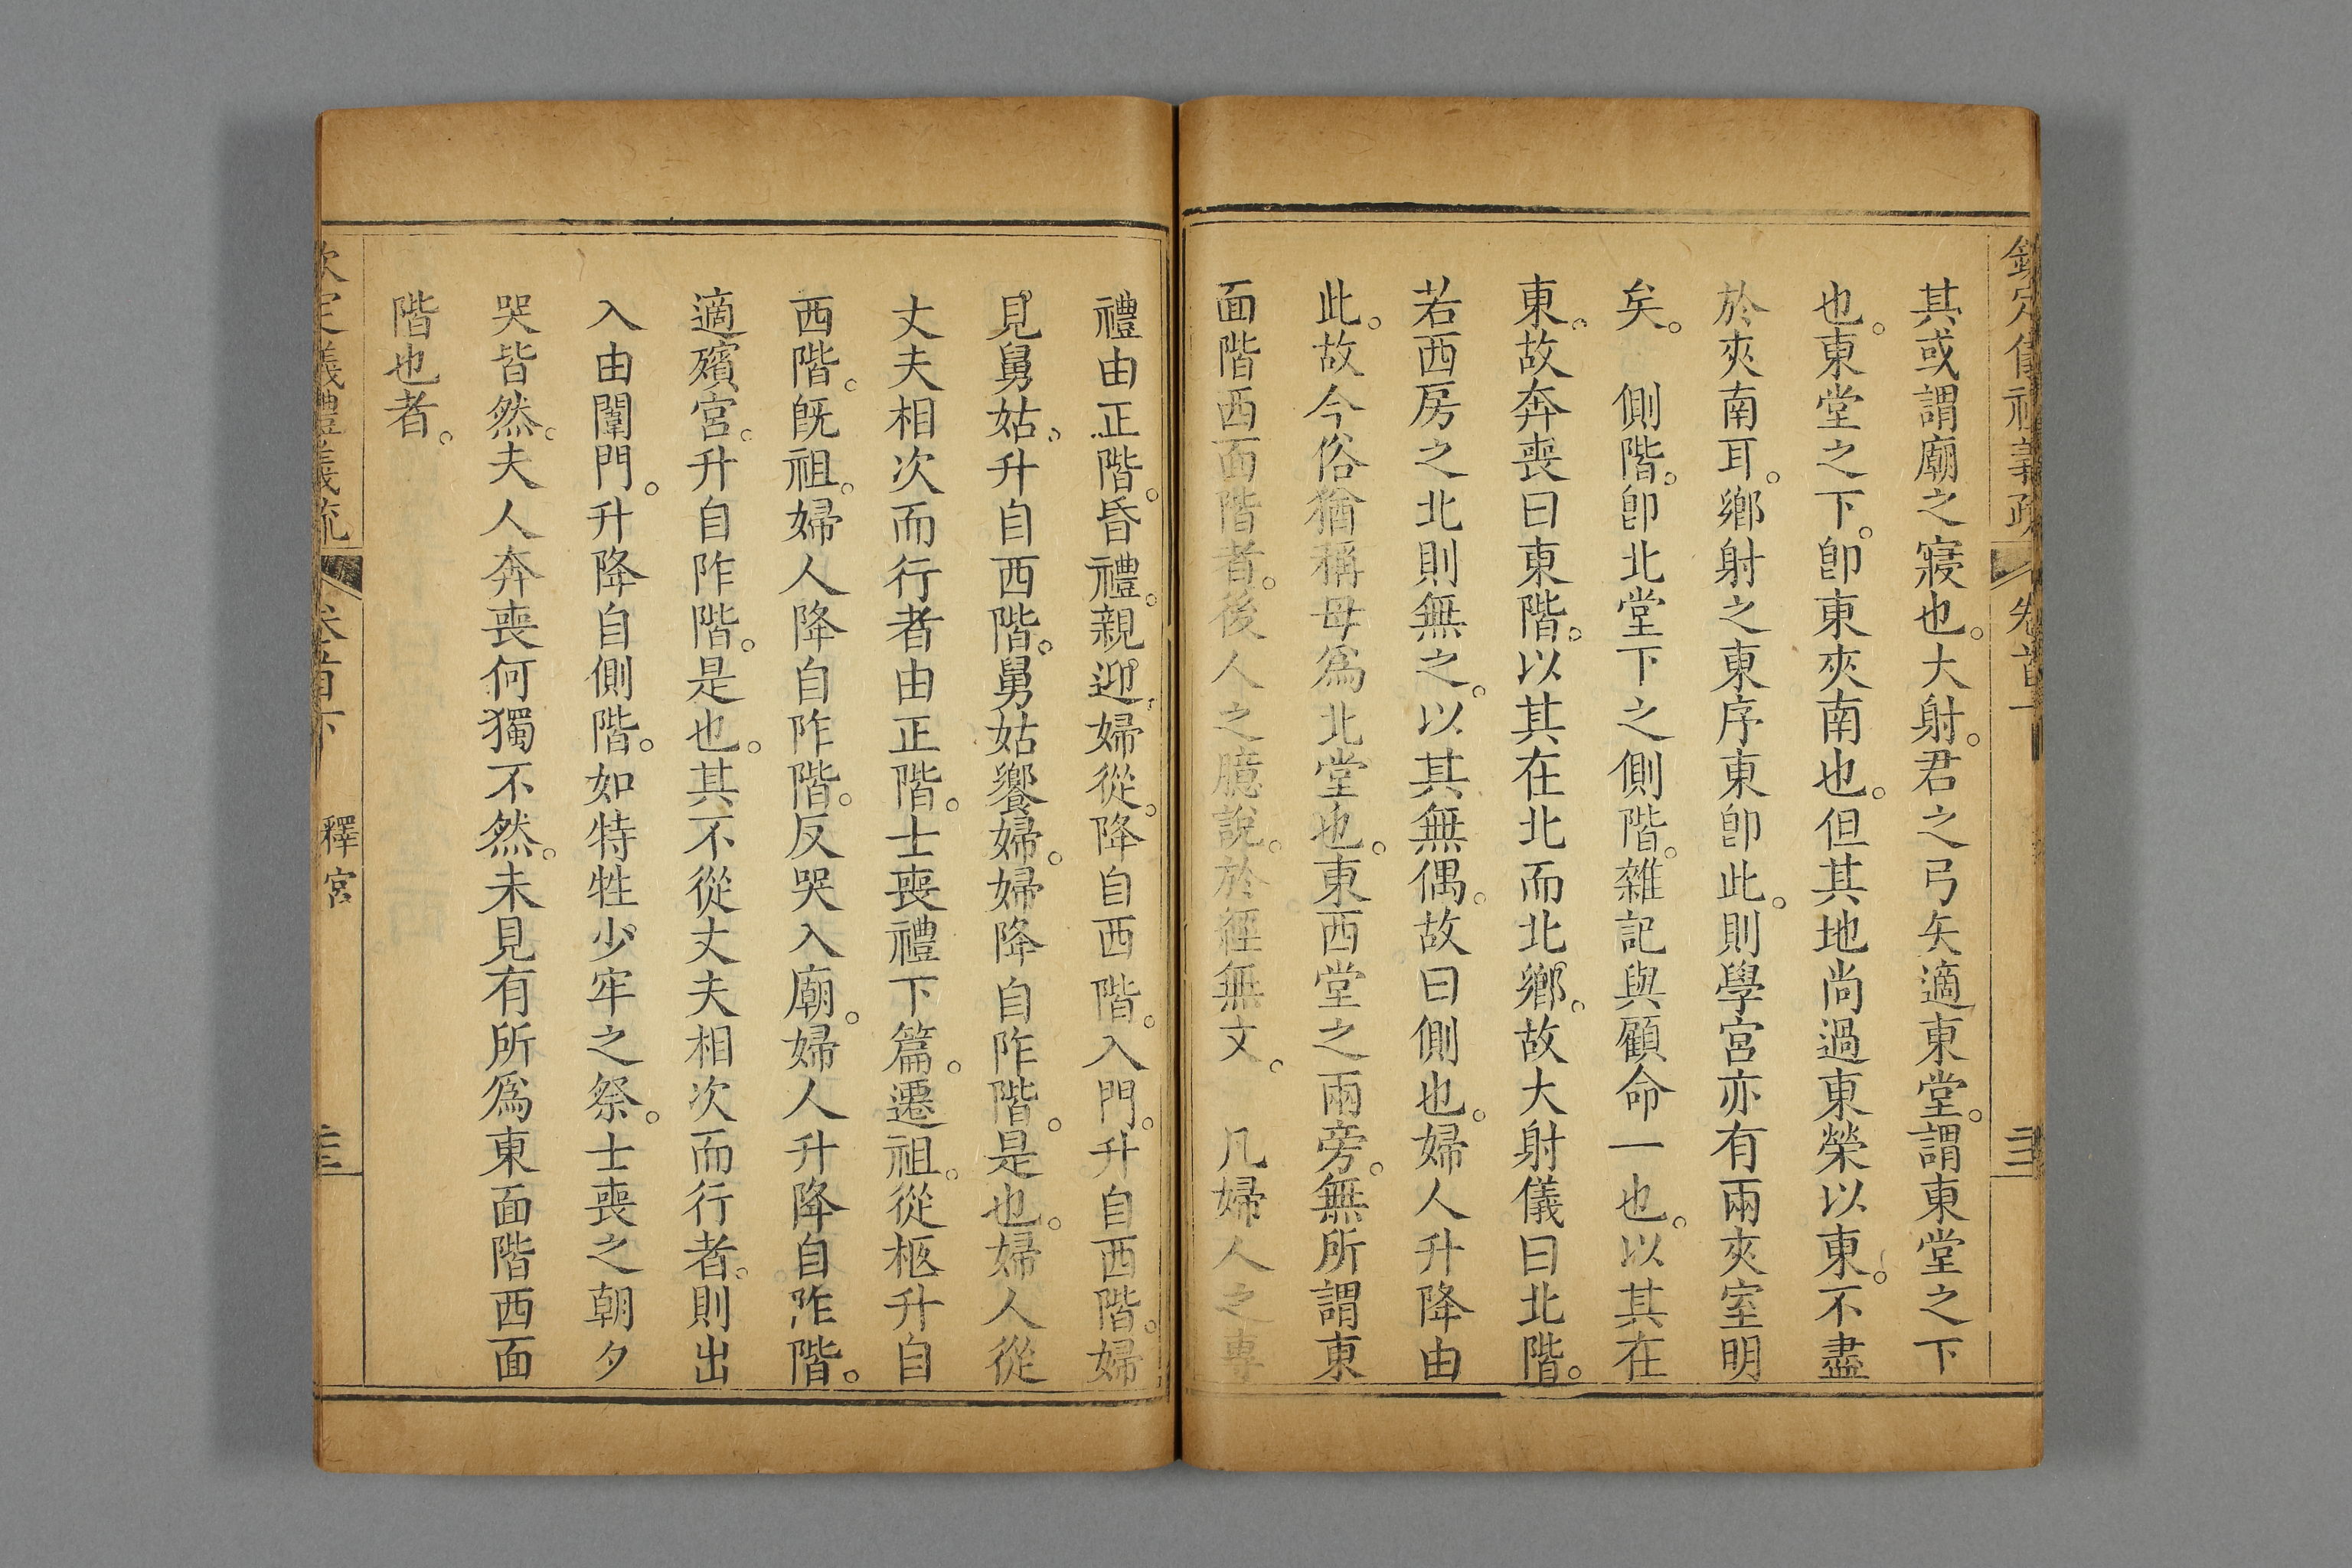 欽定儀禮義疏 卷首下 三三
其或謂廟之寢也。大射。君之弓矢適東堂。謂東堂之下
也。東堂之下。卽東夾南也。但其地尚過東榮以東。不盡
於夾南耳。鄉射之東序東卽此。則學宮亦有兩夾室明
矣。　側階。卽北堂下之側階。雜記與顧命一也。以其在
東。故奔喪曰東階。以其在北而北鄉。故大射儀曰北階。
若西房之北則無之。以其無偶。故曰側也。婦人升降由
此。故今俗猶稱母爲北堂也。東西堂之兩旁。無所謂東
面階西面階者。後人之臆說。於經無文。　凡婦人之專
禮由正階。昏禮。親迎。婦從。降自西階。入門。升自西階。婦
見舅姑。升自西階。舅姑饗婦。婦降自阼階。是也。婦人從
丈夫相次而行者由正階。士喪禮下篇。遷祖。從柩升自
西階。旣祖。婦人降自阼階。反哭入廟。婦人升降自阼階。
適殯宮。升自阼階。是也。其不從丈夫相次而行者。則出
入由闈門。升降自側階。如特牲少牢之祭。士喪之朝夕
哭皆然。夫人奔喪何獨不然。未見有所爲東面階西面
階也者。
欽定儀禮義疏 卷首下 釋宮